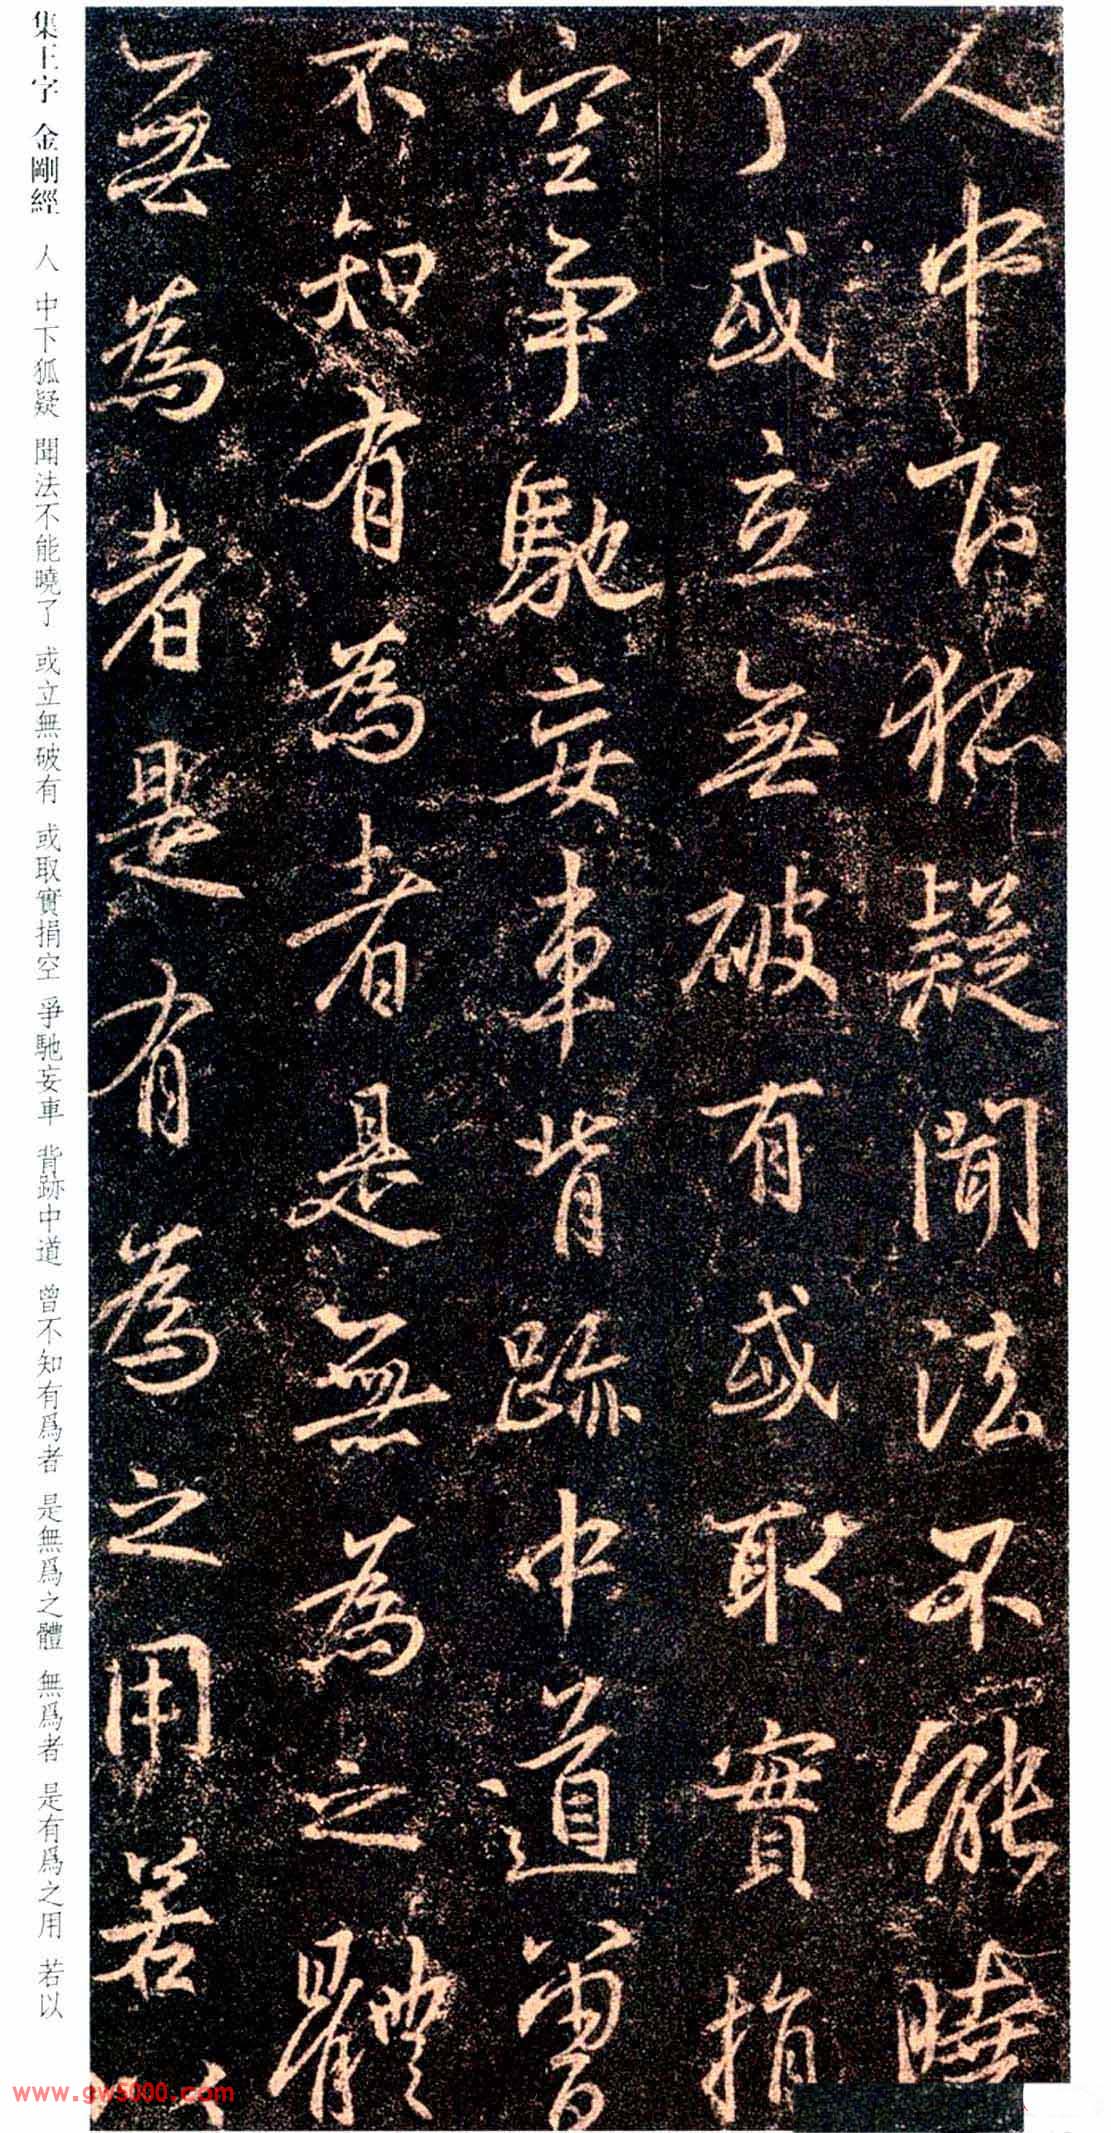 人中下狐疑聞法不能曉
了或立無破有或取實捐
空爭馳妄車背跡中道曾
不知有為者是無為之體
無為者是有為之用若以
集王字 金剛經 人 中下狐疑 聞法不能曉了 或立無破有 或取實捐空 爭馳妄車 背跡中道 曾不知有爲者 是無爲之體 無爲者 是有爲之用 若以
www.gw5000.com